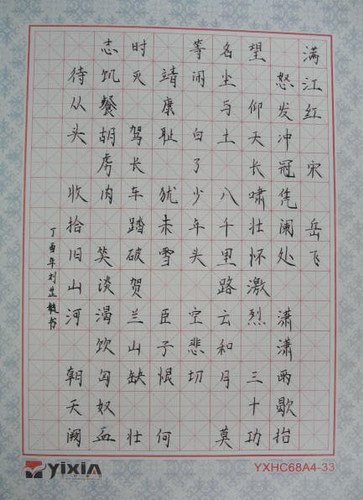 满江红 宋 岳飞
怒发冲冠凭阑处 潇潇雨歇抬
望 仰天长啸壮怀激烈 三十功
名尘与土 八千里路云和月 莫
等闲 白了少年头 空悲切
靖康耻 犹未雪 臣子恨 何
时灭 驾长车踏破贺兰山缺 壮
志饥餐胡虏肉 笑谈渴饮匈奴血
待从头 收拾旧山河 朝天阙
丁酉年刘书
YIXIN
YXHC68A4-33